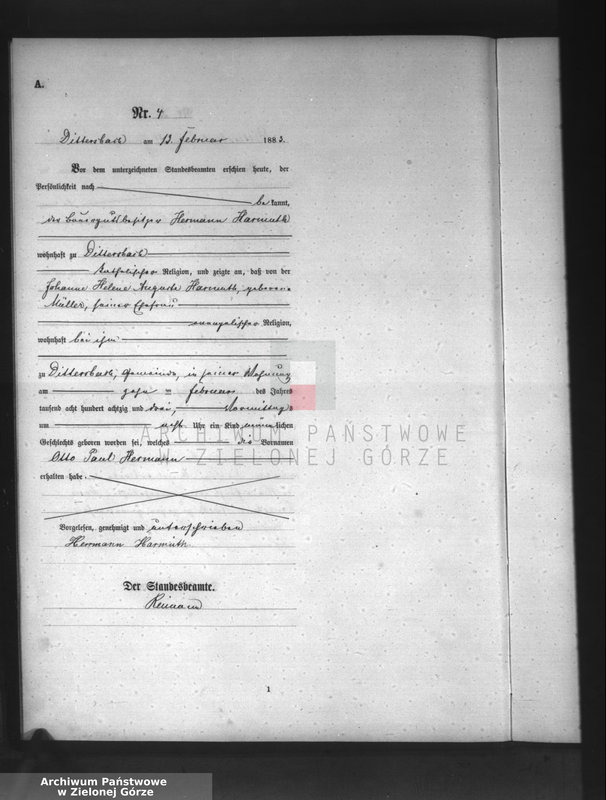 A.
Nr. 4
Dittersbach am 13. Februar 1883.
Vor dem unterzeichneten Standesbeamten erschien heute, der
Persönlichkeit nach
bekannt,
der Bauergutsbesitzer Hermann Harmuth
wohnhaft zu Dittersbach
katholischer Religion, und zeigte an, daß von der
Johanne Helene Auguste Harmuth, geborene
Müller, seiner Ehefrau
evangelischer Religion,
wohnhaft bei ihm
zu Dittersbach, Gemeinde, in seiner Wohnung
am zehn ten Februar des Jahres
tausend acht hundert achtzig und drei, Vormittags
um acht Uhr ein Kind männlichen
Geschlechts geboren worden sei, welches die Vornamen
Otto Paul Hermann
erhalten habe.
Vorgelesen, genehmigt und unterschrieben
Herrmann Harmuth
Der Standesbeamte.
1
ARCHIWUM PAŃSTWOWE
W ZIELONEJ GÓRZE
Archiwum Państwowe
w Zielonej Górze